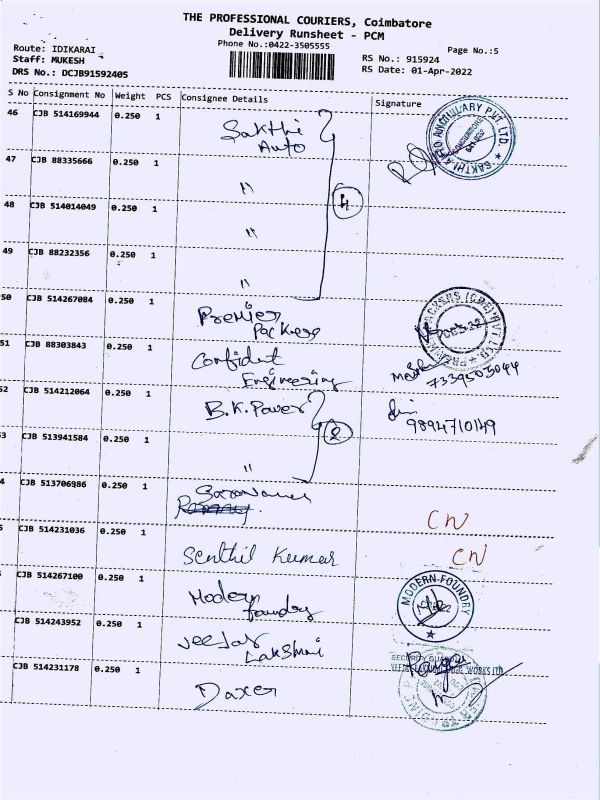 THE PROFESSIONAL COURIERS, Coimbatore
Delivery Runsheet - PCM
Phone No.:0422-3505555
Page No.:5
Route: IDIKARAI
Staff: MUKESH
DRS No.: DCJB91592405
RS No.: 915924
RS Date: 01-Apr-2022
S No Consignment No Weight PCS Consignee Details Signature
46 CJB 514169944 0.250 1 Sakthi
Auto
47 CJB 88335666 0.250 1 "
4
48 CJB 514014049 0.250 1 "
49 CJB 88232356 0.250 1 "
50 CJB 514267084 0.250 1 Premier
Packers
51 CJB 88303843 0.250 1 Confident
Engineering
7339503044
52 CJB 514212064 0.250 1 B.K. Power
9894710149
2
3 CJB 513941584 0.250 1 "
4 CJB 513706986 0.250 1 Saravanan
CN
CJB 514231036 0.250 1 Senthil Kumar CN
CJB 514267100 0.250 1 Modern
foundry
MODERN FOUNDRY
CJB 514243952 0.250 1 Veejay
Lakshmi
CJB 514231178 0.250 1 Daxer